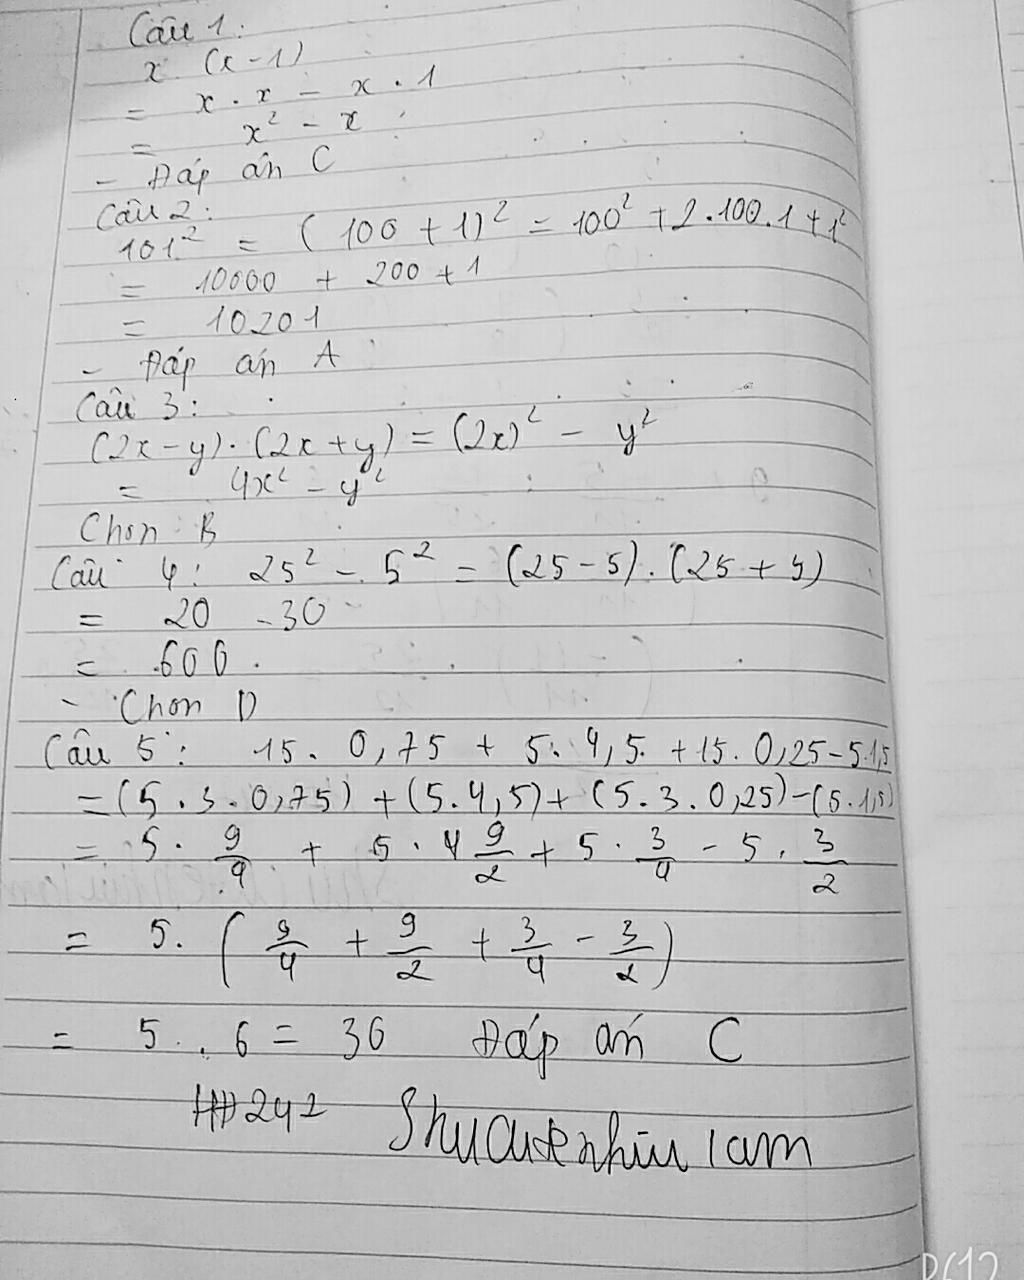 Câu 1:
x (x - 1)
= x . x - x . 1
= x² - x
- Đáp án C
Câu 2:
101² = (100 + 1)² = 100² + 2.100.1 + 1²
= 10000 + 200 + 1
= 10201
- Đáp án A
Câu 3:
(2x - y) . (2x + y) = (2x)² - y²
= 4x² - y²
Chọn B
Câu 4: 25² - 5² = (25 - 5) . (25 + 5)
= 20 . 30
= 600
- Chọn D
Câu 5: 15 . 0,75 + 5 . 4,5 + 15 . 0,25 - 5.1,5
= (5 . 3 . 0,75) + (5 . 4,5) + (5 . 3 . 0,25) - (5 . 1,5)
= 5 . 9/4 + 5 . 4 9/2 + 5 . 3/4 - 5 . 3/2
= 5 . (9/4 + 9/2 + 3/4 - 3/2)
= 5 . 6 = 30 Đáp án C